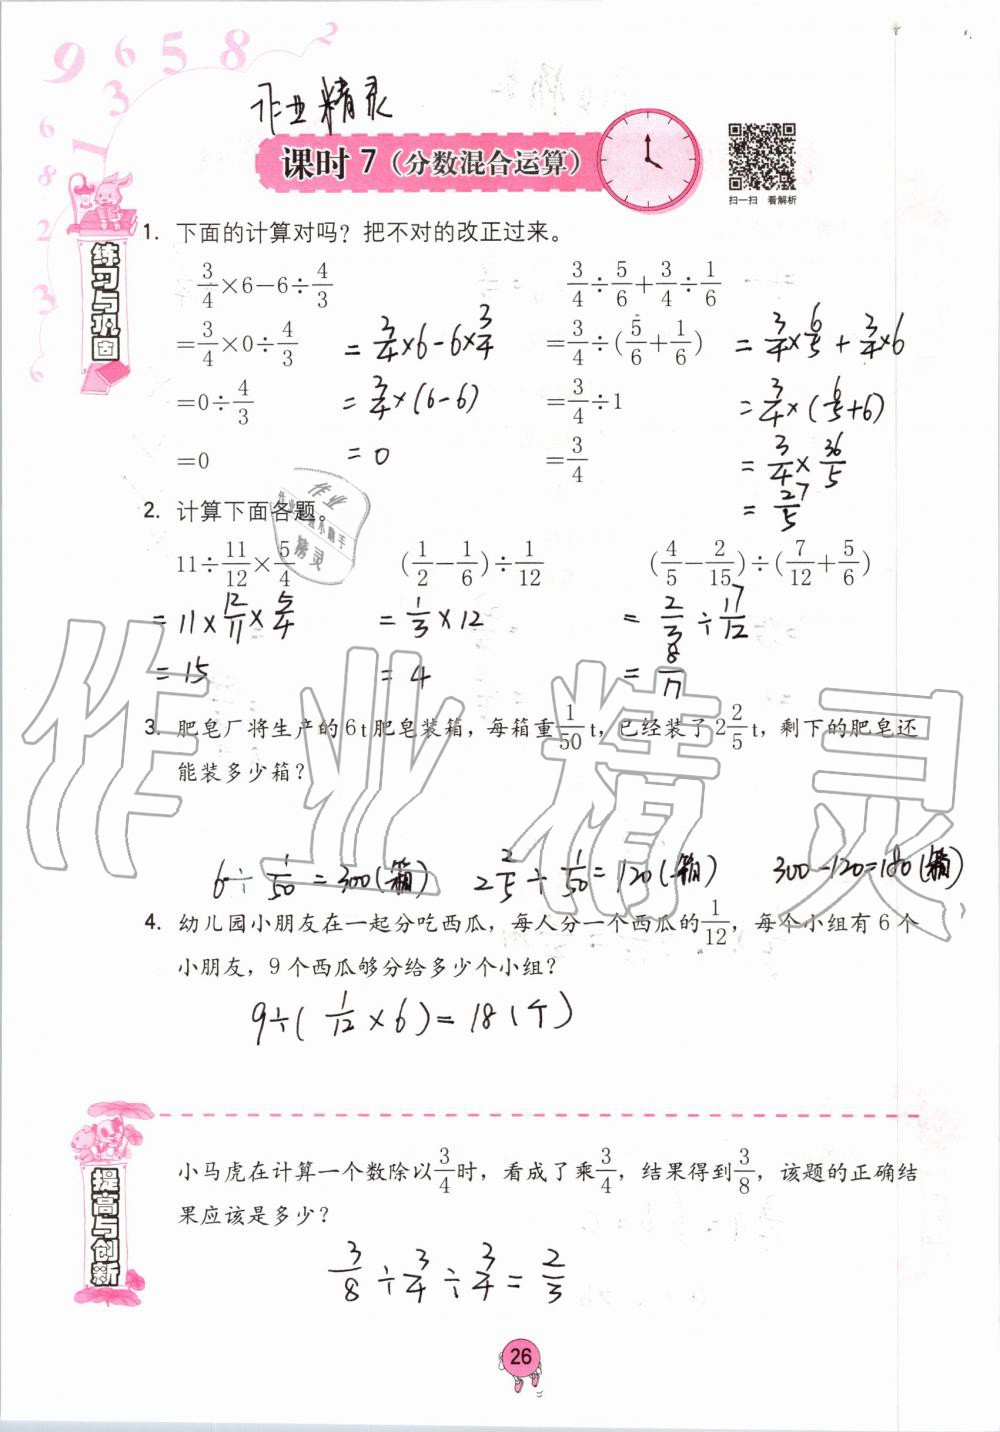 9 6 5 8 2
作业精灵
课时 7（分数混合运算）
扫一扫 看解析
练习与巩固
1. 下面的计算对吗？把不对的改正过来。
3/4×6−6÷4/3    3/4÷5/6+3/4÷1/6
=3/4×0÷4/3  =3/4×6−6×3/4    =3/4÷(5/6+1/6)  =3/4×6/5+3/4×6
=0÷4/3  =3/4×(6−6)    =3/4÷1  =3/4×(6/5+6)
=0  =0    =3/4  =3/4×36/5
=27/5
2. 计算下面各题。
11÷11/12×5/4    (1/2−1/6)÷1/12    (4/5−2/15)÷(7/12+5/6)
=11×12/11×5/4    =1/3×12    =2/3÷17/12
=15    =4    =8/17
3. 肥皂厂将生产的6t肥皂装箱，每箱重1/50t，已经装了2 2/5t，剩下的肥皂还
能装多少箱？
6÷1/50=300(箱)  2 2/5÷1/50=120(箱)  300−120=180(箱)
4. 幼儿园小朋友在一起分吃西瓜，每人分一个西瓜的1/12，每个小组有6个
小朋友，9个西瓜够分给多少个小组？
9÷(1/12×6)=18(个)
提高与创新
小马虎在计算一个数除以3/4时，看成了乘3/4，结果得到3/8，该题的正确结
果应该是多少？
3/8÷3/4÷3/4=2/3
26
作业精灵